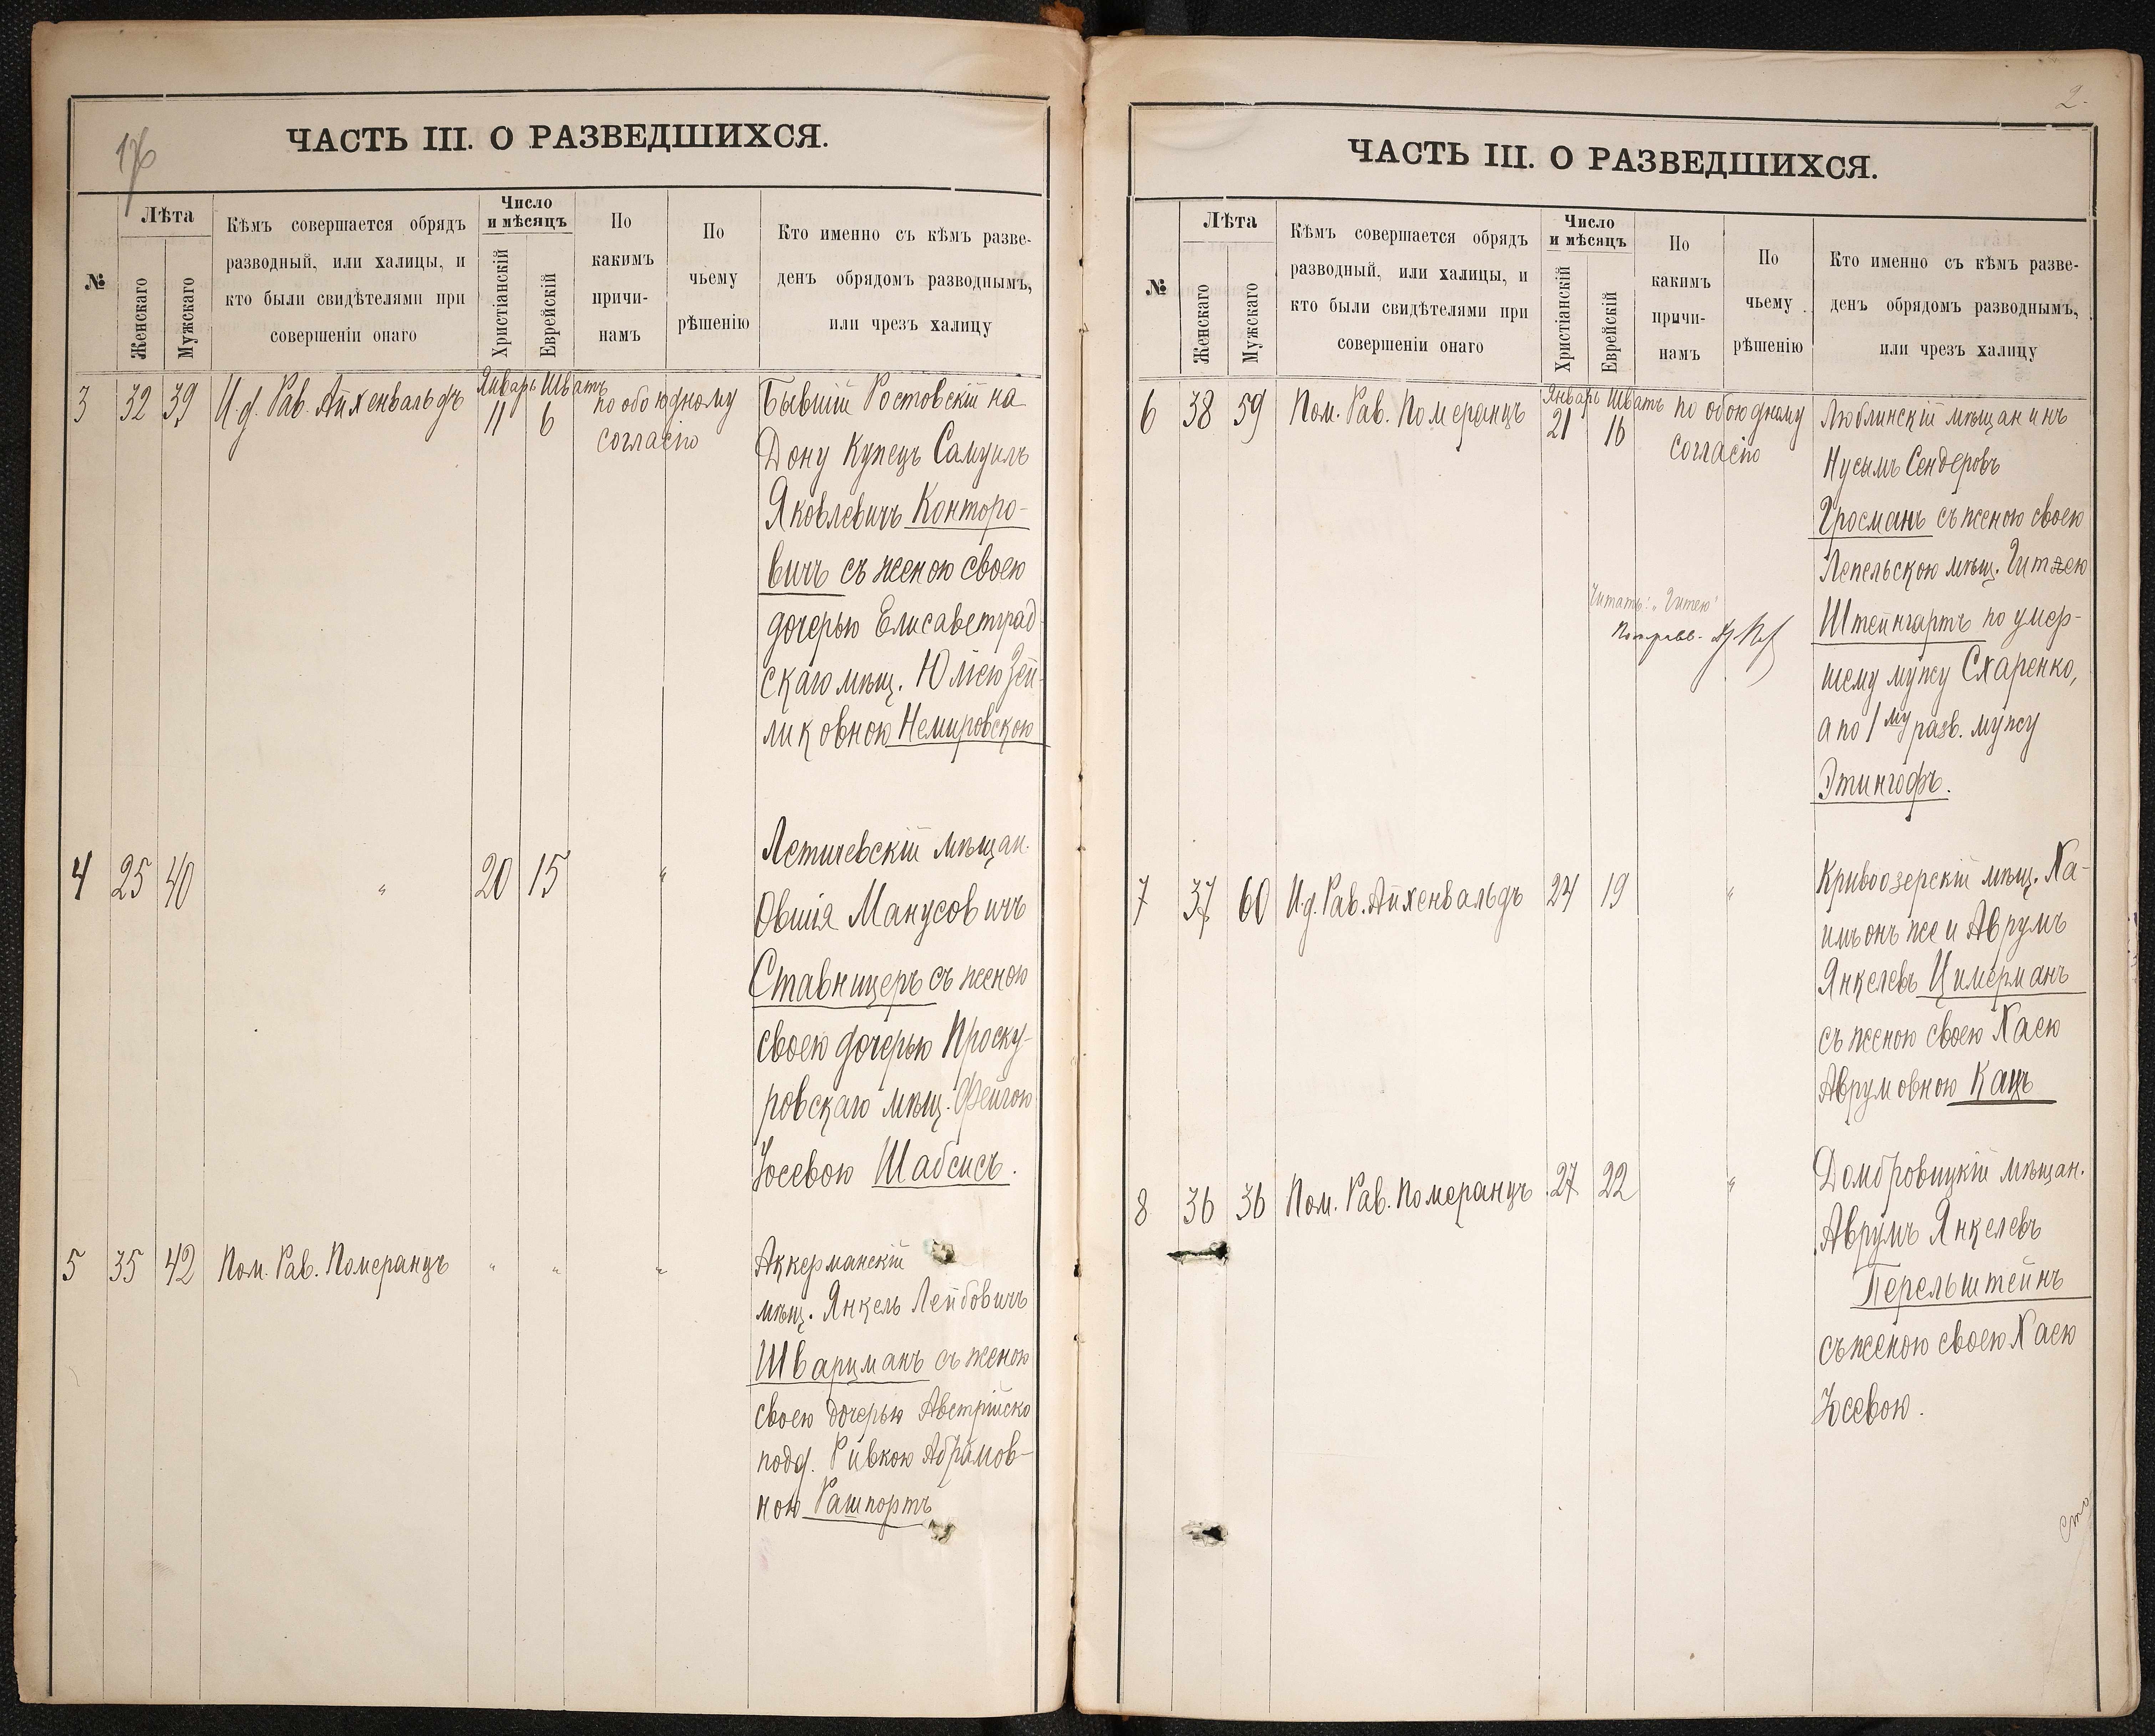 176
ЧАСТЬ III. О РАЗВЕДШИХСЯ.
№
Лѣта
Женскаго
Мужскаго
Кѣмъ совершается обрядъ
разводный, или халицы, и
кто были свидѣтелями при
совершеніи онаго
Число
и мѣсяцъ
Христіанскій
Еврейскій
По
какимъ
причи-
намъ
По
чьему
рѣшенію
Кто именно съ кѣмъ разве-
денъ обрядомъ разводнымъ,
или чрезъ халицу
3 32 39 И.д. Рав. Айхенвальдъ
Январь Шватъ
11 6
по обоюдному
согласію
Бывшій Ростовскій на
Дону купецъ Самуилъ
Яковлевичъ Конторо-
вичъ съ женою своею
дочерью Елисаветград-
скаго мѣщ. Юліею Зей-
ликовною Немировскою
4 25 40 " 20 15 "
Летичевскій мѣщан.
Овшія Манусовичъ
Ставницеръ съ женою
своею дочерью Проску-
ровскаго мѣщ. Фейгою
Іосевою Шабсисъ.
5 35 42 Пом. Рав. Померанцъ " " "
Аккерманскій
мѣщ. Янкель Лейбовичъ
Шварцманъ съ женою
своею дочерью Австрійско
подд. Ривкою Абрамов-
ною Рашпортъ
2.
ЧАСТЬ III. О РАЗВЕДШИХСЯ.
№
Лѣта
Женскаго
Мужскаго
Кѣмъ совершается обрядъ
разводный, или халицы, и
кто были свидѣтелями при
совершеніи онаго
Число
и мѣсяцъ
Христіанскій
Еврейскій
По
какимъ
причи-
намъ
По
чьему
рѣшенію
Кто именно съ кѣмъ разве-
денъ обрядомъ разводнымъ,
или чрезъ халицу
6 38 59 Пом. Рав. Померанцъ
Январь Шватъ
21 16
по обоюдному
согласію
Люблинскій мѣщанинъ
Нусымъ Сендеровъ
Гросманъ съ женою своею
Лепельскою мѣщ. Гитлею
Штейнгартъ по умер-
шему мужу Схаренко,
а по 1му разв. мужу
Этингофъ.
Читать: "Гитею"
7 37 60 И.д. Рав. Айхенвальдъ 24 19 "
Кривоозерскій мѣщ. Ха-
имъ онъ же и Аврумъ
Янкелевъ Цимерманъ
съ женою своею Хаею
Аврумовною Кацъ
8 36 36 Пом. Рав. Померанцъ 27 22 "
Домбровицкій мѣщан.
Аврумъ Янкелевъ
Перельштейнъ
съ женою своею Хаею
Іосевою.